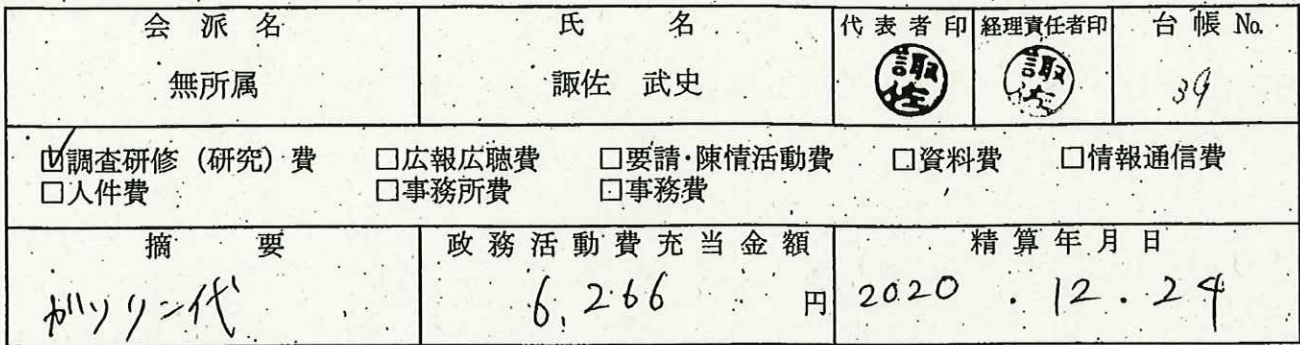 会派名 氏名 代表者印 経理責任者印 台帳No.
無所属 諏佐 武史 諏佐 諏佐 39
☑調査研修(研究)費 □広報広聴費 □要請・陳情活動費 □資料費 □情報通信費
□人件費 □事務所費 □事務費
摘要 政務活動費充当金額 精算年月日
ガソリン代 6,266 円 2020.12.24